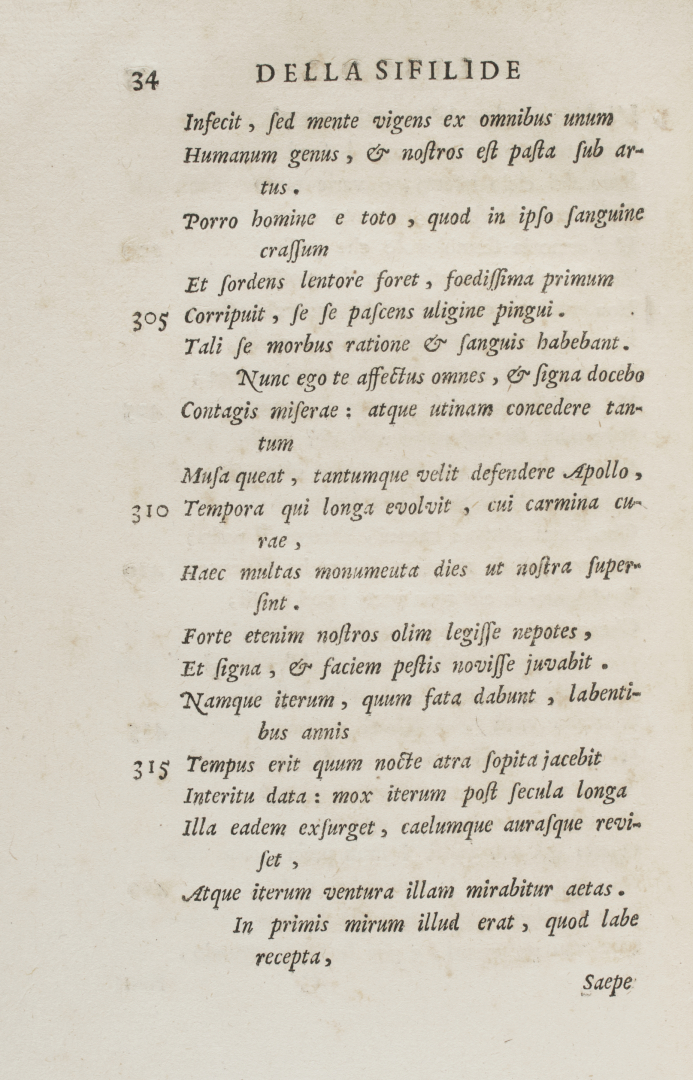 34 DELLA SIFILIDE
Infecit, ſed mente vigens ex omnibus unum
Humanum genus, & noſtros eſt paſta ſub ar-
tus.
Porro homine e toto, quod in ipſo ſanguine
craſſum
Et ſordens lentore foret, foediſſima primum
305 Corripuit, ſe ſe paſcens uligine pingui.
Tali ſe morbus ratione & ſanguis habebant.
Nunc ego te affectus omnes, & ſigna docebo
Contagis miſerae: atque utinam concedere tan-
tum
Muſa queat, tantumque velit defendere Apollo,
310 Tempora qui longa evolvit, cui carmina cu-
rae,
Haec multas monumeuta dies ut noſtra ſuper-
ſint.
Forte etenim noſtros olim legiſſe nepotes,
Et ſigna, & faciem peſtis noviſſe juvabit.
Namque iterum, quum fata dabunt, labenti-
bus annis
315 Tempus erit quum nocte atra ſopita jacebit
Interitu data: mox iterum poſt ſecula longa
Illa eadem exſurget, caelumque auraſque revi-
ſet,
Atque iterum ventura illam mirabitur aetas.
In primis mirum illud erat, quod labe
recepta,
Saepe